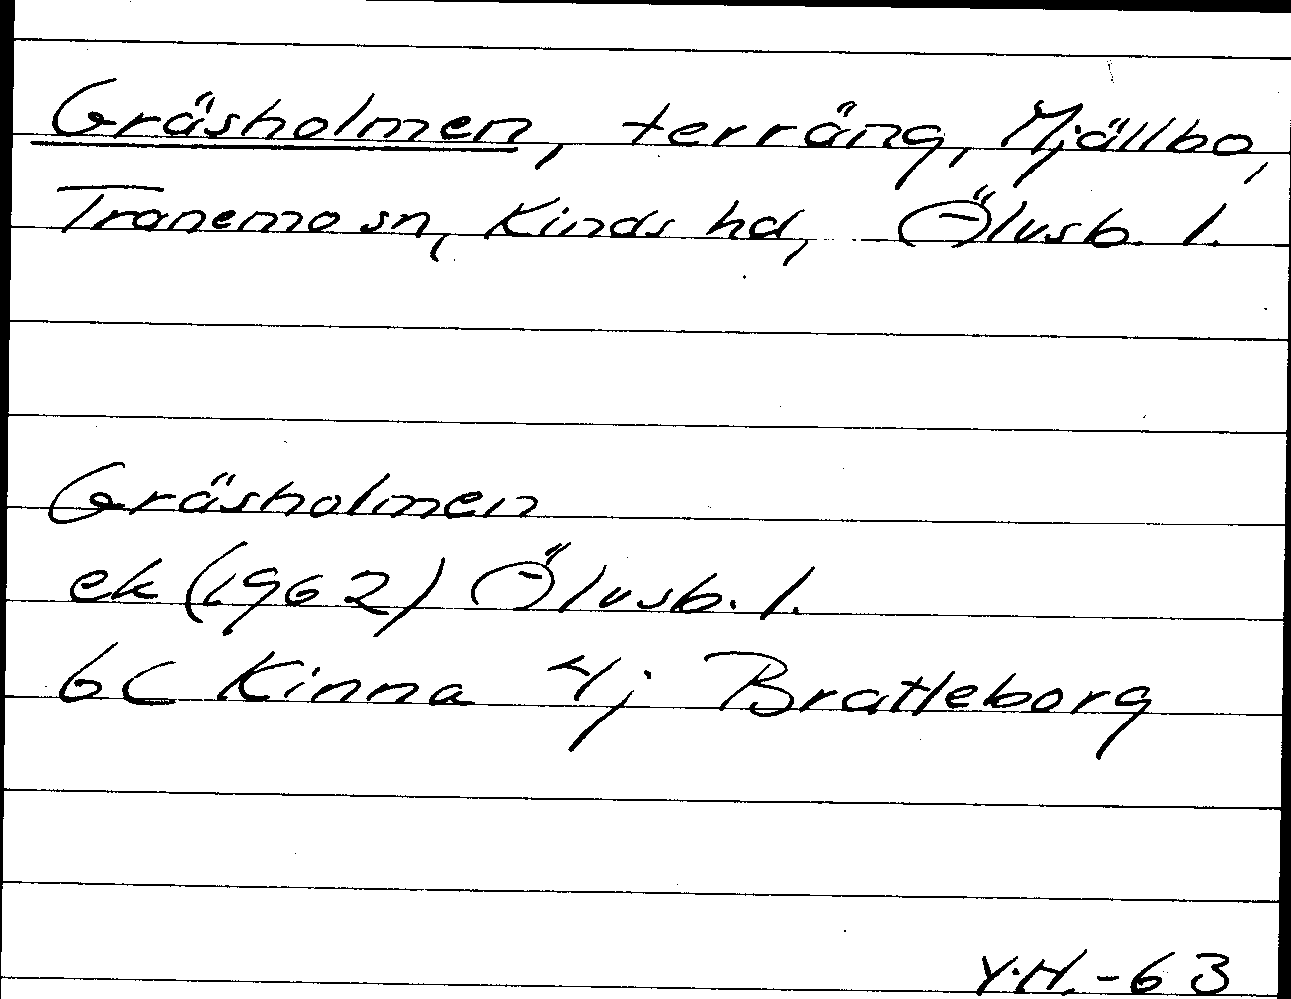 Gräsholmen, terräng, Mjällbo,
Tranemo sn, Kinds hd, Älvsb. l.
Gräsholmen
ek (1962) Älvsb. l.
6C Kinna 4j Brattleborg
Y.H. -63